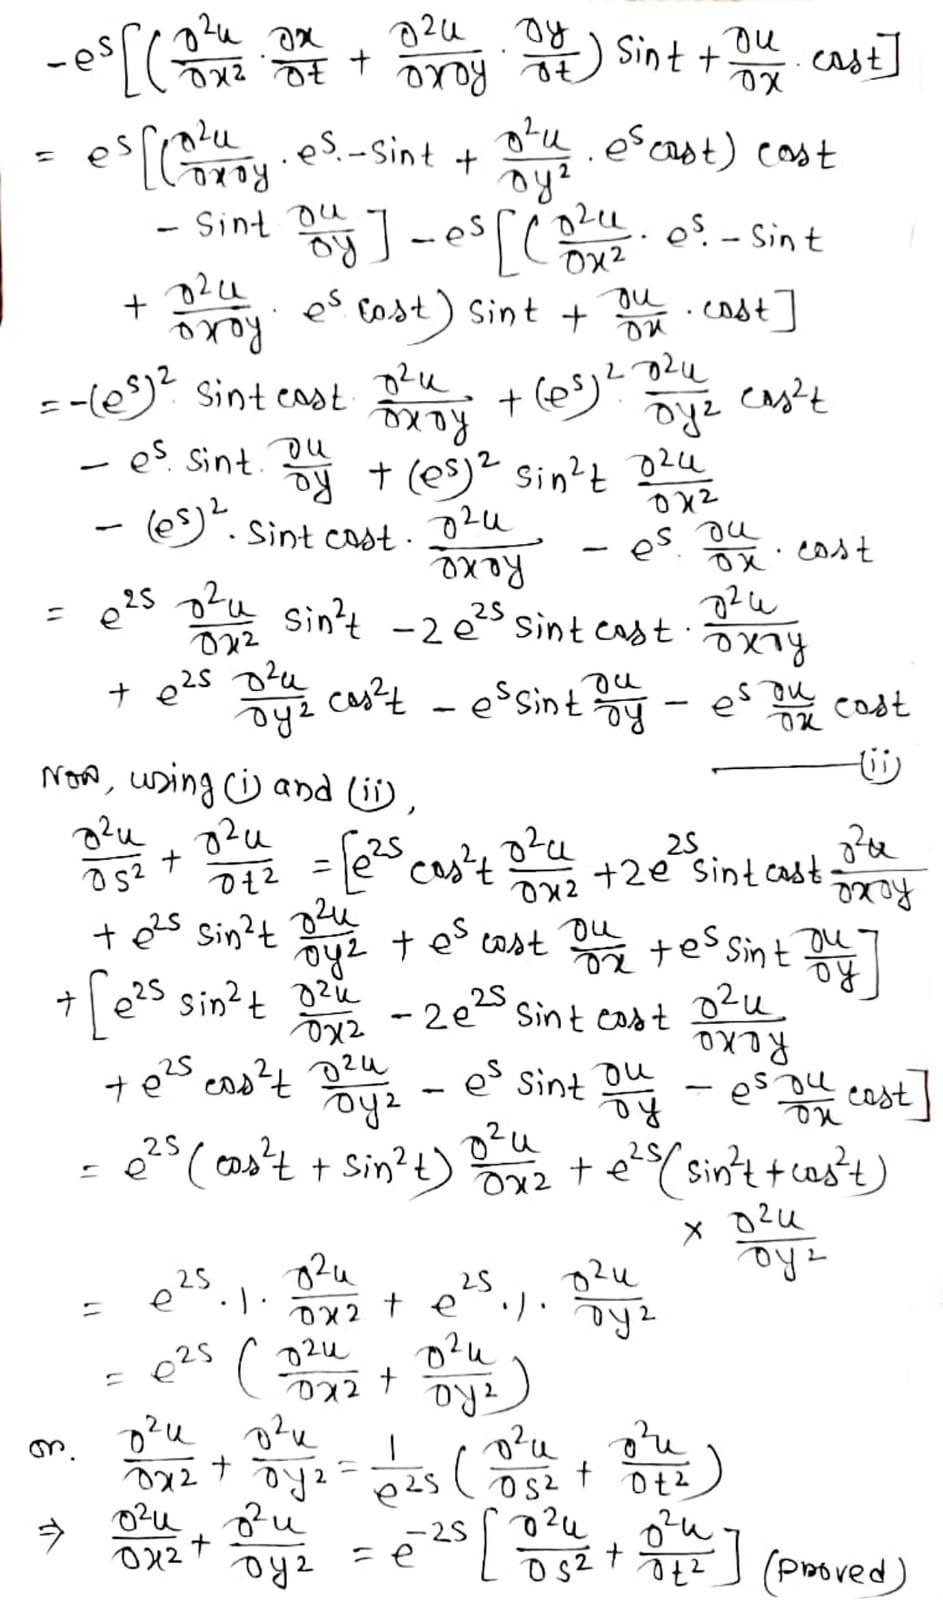 -e^s[(∂²u/∂x² · ∂x/∂t + ∂²u/∂x∂y · ∂y/∂t) Sint + ∂u/∂x · cost]
= e^s[(∂²u/∂x∂y · e^s.-Sint + ∂²u/∂y² . e^s cost) cost
- Sint ∂u/∂y] - e^s[(∂²u/∂x² · e^s. - Sint
+ ∂²u/∂x∂y · e^s cost) Sint + ∂u/∂x · cost]
= -(e^s)² Sint cost · ∂²u/∂x∂y + (e^s)² ∂²u/∂y² cos²t
- e^s. Sint. ∂u/∂y + (e^s)² sin²t ∂²u/∂x²
- (e^s)². Sint cost . ∂²u/∂x∂y - e^s. ∂u/∂x · cost
= e^2s ∂²u/∂x² Sin²t - 2e^2s Sint cost . ∂²u/∂x∂y
+ e^2s ∂²u/∂y² cos²t - e^s Sint ∂u/∂y - e^s ∂u/∂x cost
Now, using (i) and (ii), —— (ii)
∂²u/∂s² + ∂²u/∂t² = [e^2s cos²t ∂²u/∂x² + 2e^2s Sint cost ∂²u/∂x∂y
+ e^2s Sin²t ∂²u/∂y² + e^s cost ∂u/∂x + e^s Sint ∂u/∂y]
+ [e^2s sin²t ∂²u/∂x² - 2e^2s Sint cost ∂²u/∂x∂y
+ e^2s cos²t ∂²u/∂y² - e^s Sint ∂u/∂y - e^s ∂u/∂x cost]
= e^2s (cos²t + Sin²t) ∂²u/∂x² + e^2s (sin²t + cos²t)
× ∂²u/∂y²
= e^2s . 1 . ∂²u/∂x² + e^2s . 1 . ∂²u/∂y²
= e^2s (∂²u/∂x² + ∂²u/∂y²)
or. ∂²u/∂x² + ∂²u/∂y² = 1/e^2s (∂²u/∂s² + ∂²u/∂t²)
⇒ ∂²u/∂x² + ∂²u/∂y² = e^-2s [∂²u/∂s² + ∂²u/∂t²] (proved)